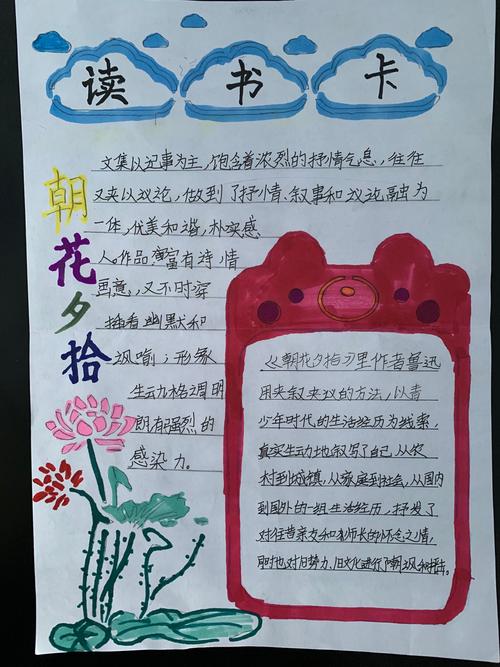 读书卡
朝花夕拾
文集以记事为主,饱含着浓烈的抒情气息,往往
又夹以议论,做到了抒情、叙事和议论融为
一体,优美和谐,朴实感
人。作品富有诗情
画意,又不时穿
插着幽默和
讽喻;形象
生动,格调明
朗,有强烈的
感染力。
《朝花夕拾》里作者鲁迅
用夹叙夹议的方法,以青
少年时代的生活经历为线索,
真实生动地叙写了自己,从农
村到城镇,从家庭到社会,从国内
到国外的一组生活经历,抒发了
对往昔亲友和师长的怀念之情,
同时也对旧势力、旧文化进行了嘲讽和抨击。